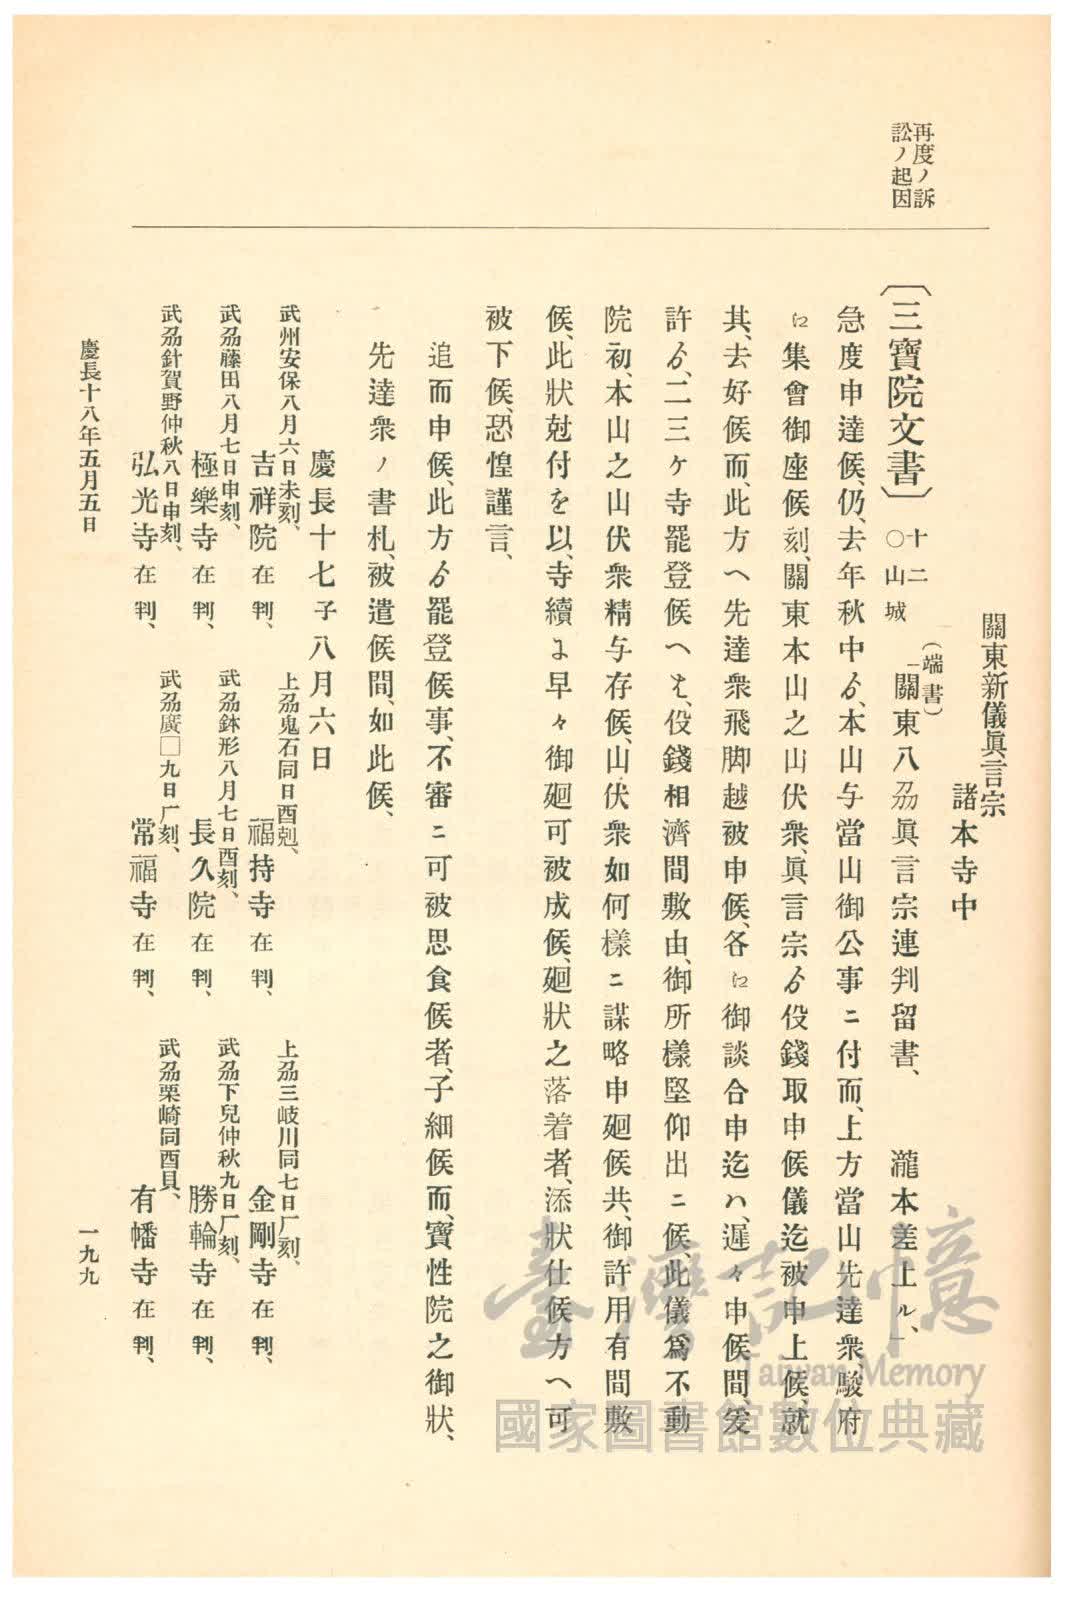 再度ノ訴
訟ノ起因
關東新儀眞言宗
諸本寺中
〔三寶院文書〕 十二
○山城
（端書）
「關東八刕眞言宗連判留書、　瀧本差上ル、」
急度申達候、仍、去年秋中ゟ、本山与當山御公事ニ付而、上方當山先達衆、駿府
ニ集會御座候刻、關東本山之山伏衆、眞言宗ゟ役錢取申候儀迄被申上候、就
其、去好候而、此方ヘ先達衆飛脚越被申候、各ニ御談合申迄ハ、遲々申候間、爰
許ゟ、二三ケ寺罷登候ヘ共、役錢相濟間敷由、御所樣堅仰出ニ候、此儀爲不動
院初、本山之山伏衆精与存候、山伏衆如何樣ニ謀略申廻候共、御許用有間敷
候、此狀尅付を以、寺續ニ早々御廻可被成候、廻狀之落着者、添狀仕候方ヘ可
被下候、恐惶謹言、
追而申候、此方ゟ罷登候事、不審ニ可被思食候者、子細候而、寶性院之御狀、
先達衆ノ書札、被遣候間、如此候、
慶長十七子八月六日
武州安保八月六日未刻、
吉祥院在判、
上刕鬼石同日酉剋、
福持寺在判、
上刕三岐川同七日厂刻、
金剛寺在判、
武刕藤田八月七日申刻、
極樂寺在判、
武刕鉢形八月七日酉刻、
長久院在判、
武刕下兒仲秋九日厂刻、
勝輪寺在判、
武刕針賀野仲秋八日申刻、
弘光寺在判、
武刕廣□九日厂刻、
常福寺在判、
武刕栗崎同酉貝、
有幡寺在判、
慶長十八年五月五日
一九九
臺灣記憶
Taiwan Memory
國家圖書館數位典藏